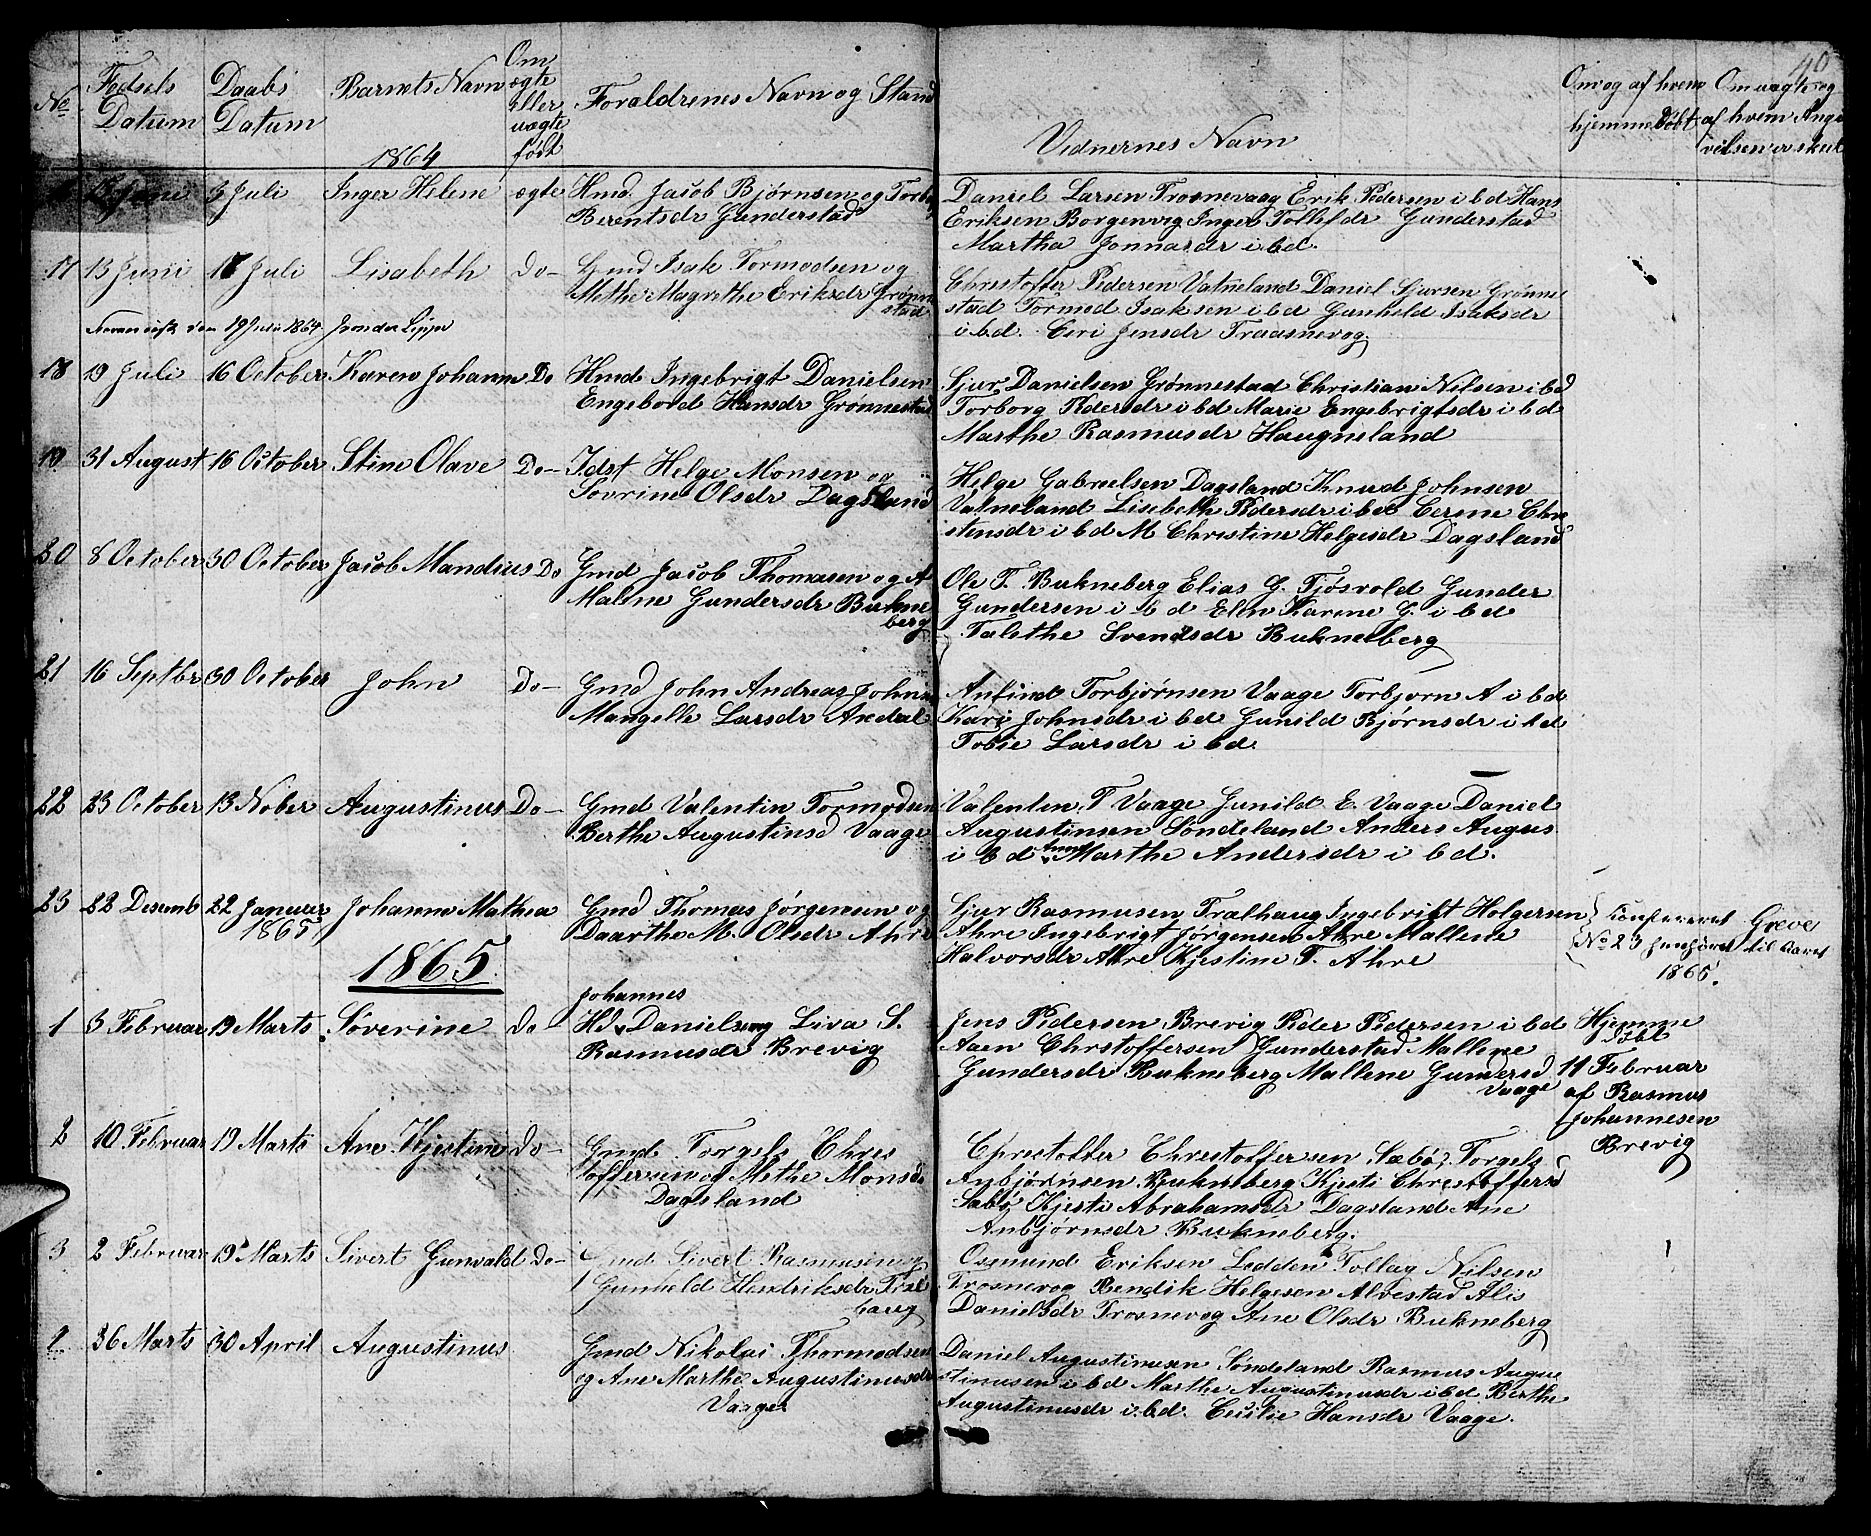 40
No
Fødsels Datum
Daabs Datum
Barnets Navn
Om ægte eller uægte født
Foraldrenes Navn og Stand
Vidnernes Navn
Om og af hvem hjemmedøbt
Om uagte og af hvem Angivelsen er skeet
1864
3 Juli Inger Helene ægte Hmd Jacob Bjørnsen og Torb
Berentsdr Gunderstad
Daniel Larsen Trosnevaag Erik Pedersen i bd Hans
Eriksen Borgenvig Inger Tollefdr Gunderstad
Martha Jonnasdr i bd.
17 13 Juni 17 Juli Lisabeth Do— Gmd Isak Tormodsen og
Methe Magrethe Eriksdr Grønne
stad
Chrestoffer Pedersen Vatneland Daniel Sjursen Grønne
stad Tormod Isaksen i bd Gunhild Isaksdr
i bd. Ceri Jensdr Traasnevog
den 19 Juli 1864
18 19 Juli 16 October Karen Johanne Do Hmd Ingebrigt Danielsen
Engebord Hansdr Grønnestad
Sjur Danielsen Grønnestad Christian Nilsen i bd
Torborg Pedersdr i bd Marie Engebrigtsdr i bd
Marthe Rasmusdr Haugneland
19 31 August 16 October Stine Olave Do— Idst Helge Monsen og
Sovrine Olsdr Dagsland
Helge Gabrielsen Dagsland Knud Johnsen
Vatneland Lisebeth Pedersdr i bd Cerine Chre
istensdr i bd M Christine Helgesdr Dagsland
20 8 October 30 October Jacob Mandius Do Gmd Jacob Thomasen og A
Malene Gundersdr Bukne
berg
Ole T. Bukneberg Elias G. Tjøsvold Gunder
Gundersen i bd Elen Karine G. i bd
Talethe Svendsdr Bukneberg
21 16 Septbr 30 October John Do— Gmd John Andreas Johnsen
Mangelle Larsdr Aredal
Anfind Torbjørnsen Vaage Torbjorn A i bd
Kari Johnsdr i bd Gunild Bjørnsdr i bd
Tobie Larsdr i bd.
22 23 October 13 Nober Augustinus Do— Gmd Valentin Tormodsen
Berthe Augustinsd Vaage
Valenten T Vaage Gunild E. Vaage Daniel
Augustinsen Søndeland Anders Augus
i bd Ane Marthe Andersdr i bd.
23 22 Desemb 22 Januar
1865
Johanne Mathea Gmd Thomas Jørgensen og
Daarthe M. Olsdr Ahre
Sjur Rasmusen Tralhaug Ingebrigt Holgersen
Ahre Ingebrigt Jørgensen Ahre Mallene
Halvorsdr Ahre Kjestine T. Ahre
No 23
1865.
Greve
1865
1 3 Februar 19 Marts Søverine Do Johannes
Hd Danielsen og Liva S.
Rasmusdr Brevig
Jens Pedersen Brevig Peder Pedersen i bd
Aaen Chrstoffersen Gunderstad Mallene
Gundersdr Bukneberg Mallene Gundersd
Vaage
Hjemme
døbt
11 Februar
af Rasmus
Johannesen
Brevig
2 10 Februar 19 Marts Ane Kjestine Do— Gmd Torgels Chres
toffersen og Methe Monsdr
Dagsland
Chrestoffer Chrestoffersen Sæbø, Torgels
Anbjørnsen Bukneberg Kjesti Chrestoffersd
Sæbø Kjesti Abrahamsdr Dagsland Ane
Anbjørnsdr Bukneberg.
3 2 Februar 19 Marts Sivert Gunvald Do— Gmd Sivert Rasmusen og
Gunneld Hendriksdr Tral
haug
Osmund Eriksen Ledden Tollag Nilsen
Trosnevog Bendik Helgesen Alvestad Alis
Danielsdr Trosnevog Ane Olsdr Bukneberg
26 Marts 30 April Augustinus Gmd Nikolai Thormodsen
og Ane Marthe Augustinusdr
Vaage
Daniel Augustinusen Søndeland Rasmus Augu
stinusen i bd Marthe Augustinusdr i bd. Berthe
Augustinusdr i bd. Cecilie Hansdr Vaage.